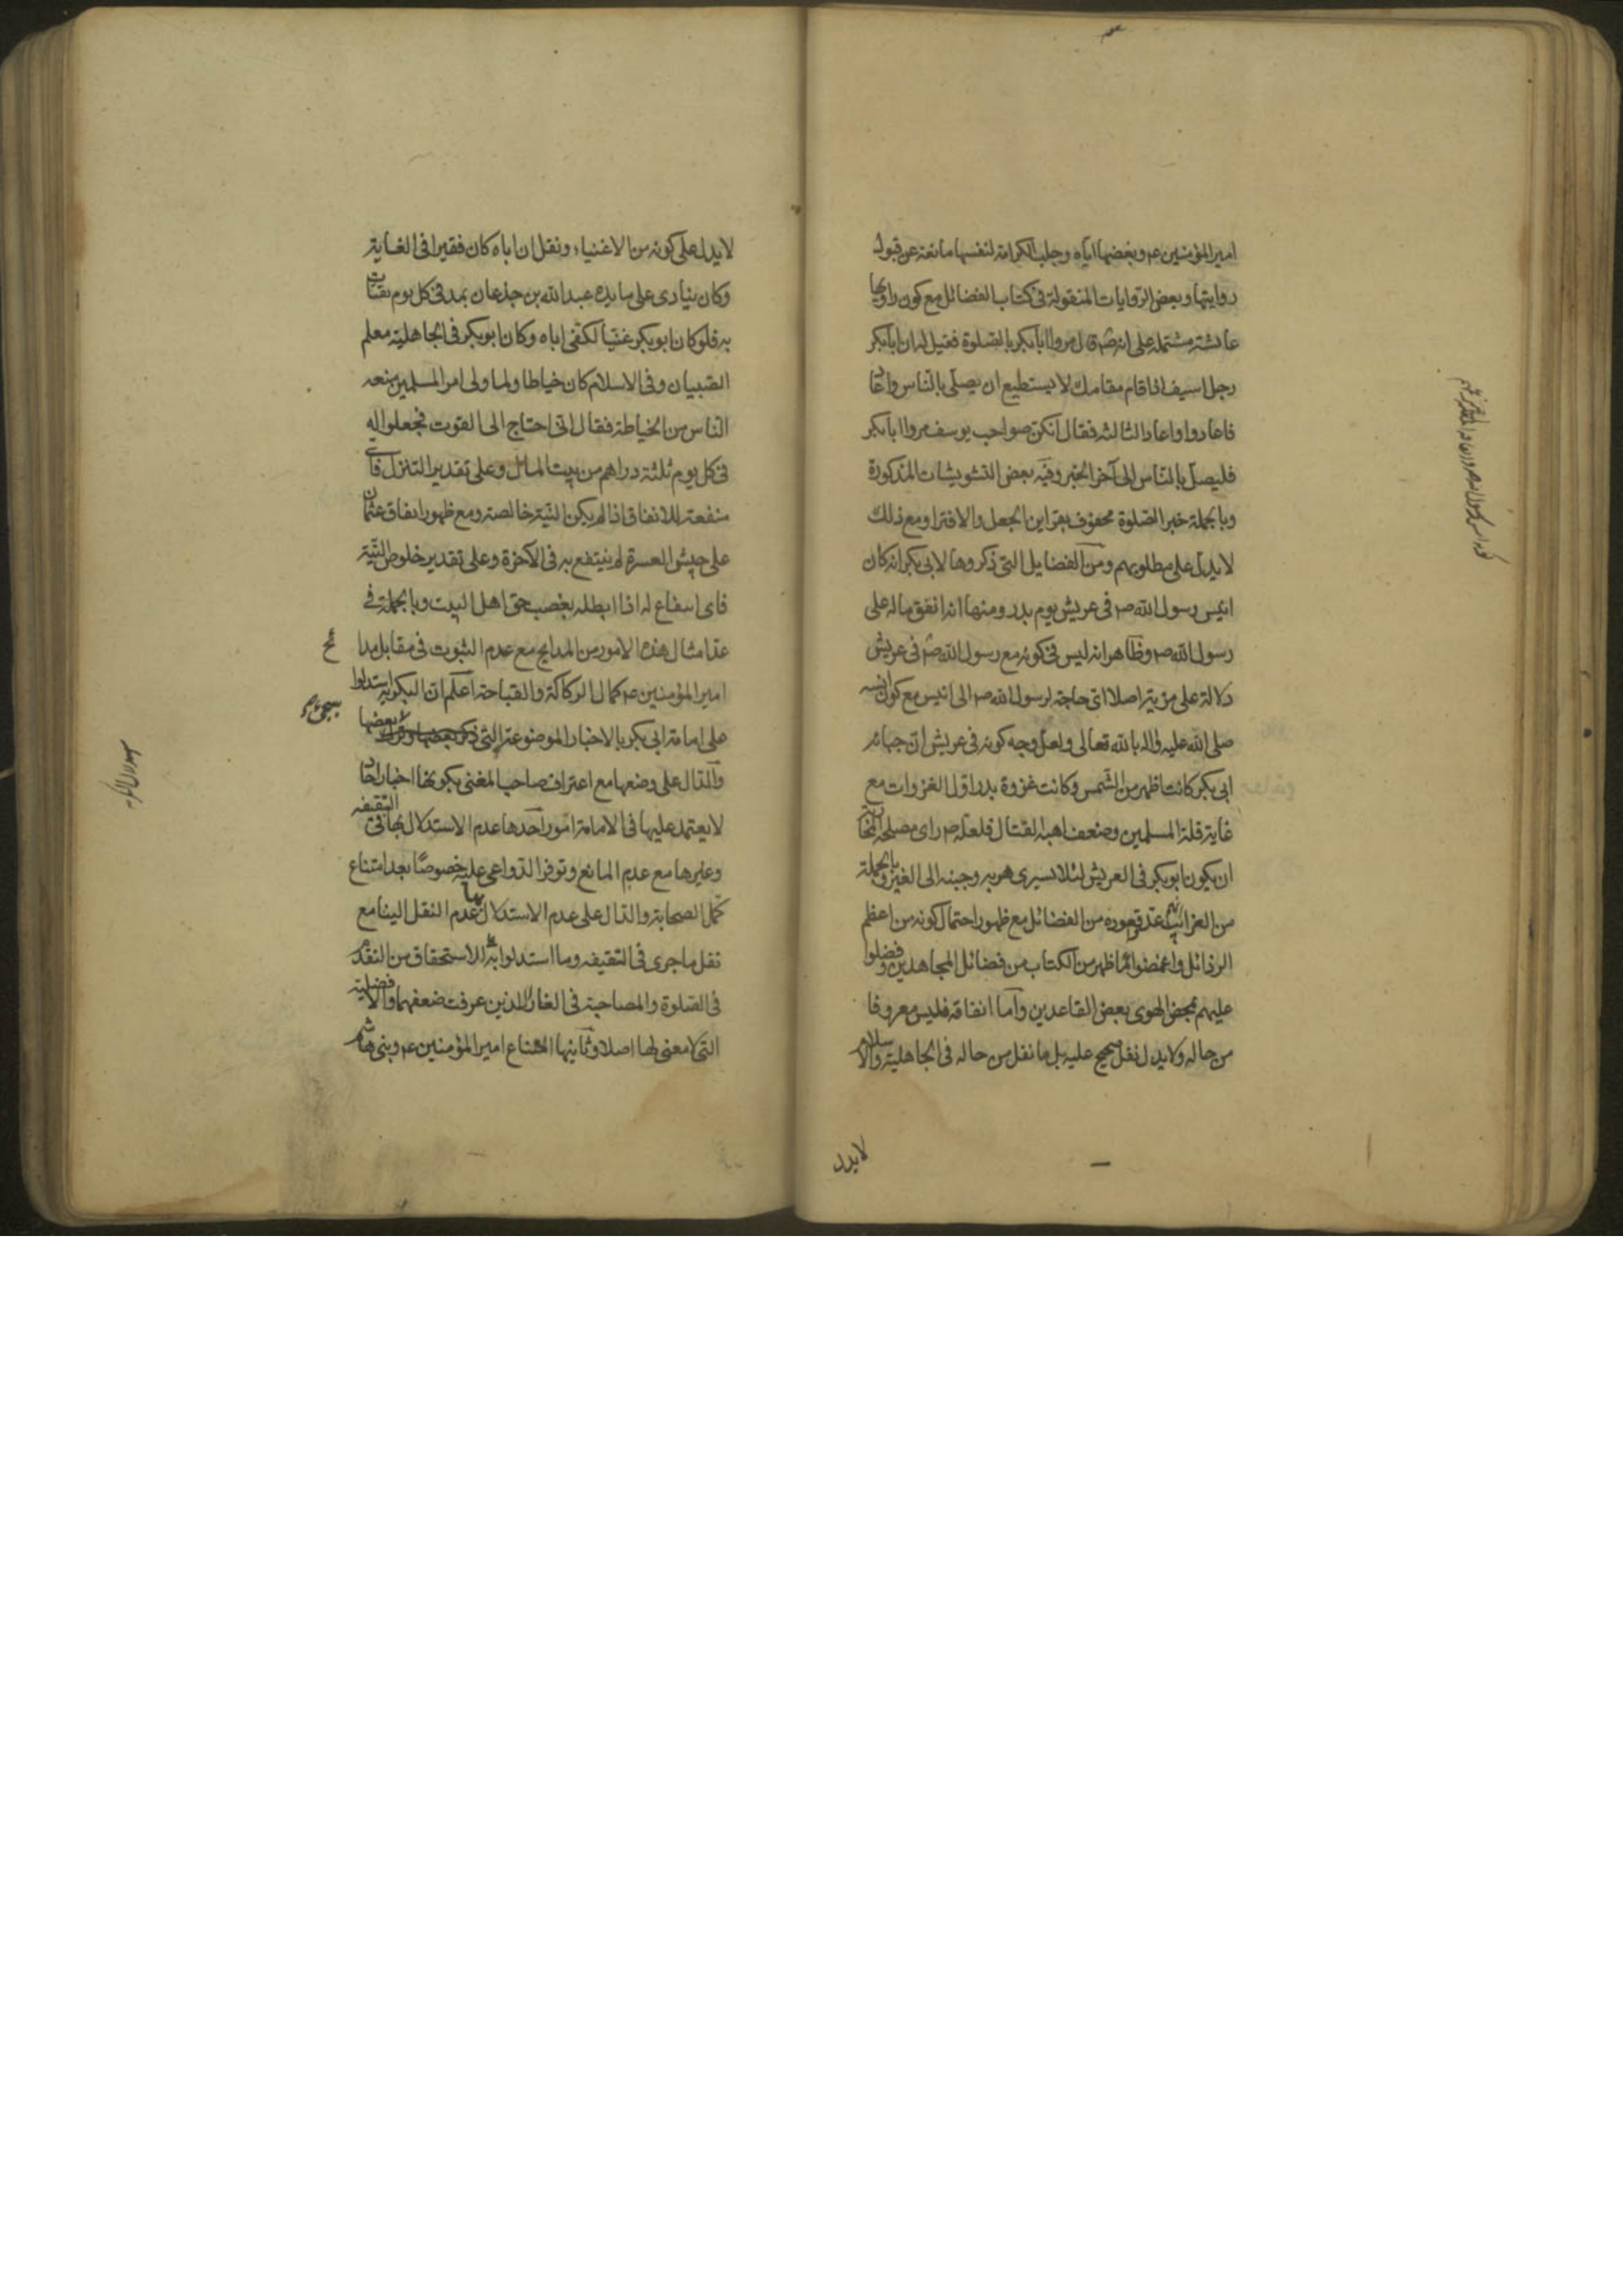 امير المؤمنين عم وبغضها اياه وجلب الكرامة لنفسها مانعة عن قبول
روايتها وبعض الروايات المنقولة فى كتاب الفضائل مع كون راويها
عائشة مشتملة على انه صم قال مروا ابا بكر بالصلوة فقيل له ان ابا بكر
رجل اسيف اذا قام مقامك لا يستطيع ان يصلى بالناس
فاعادوا واعاد الثالثة فقال انكن صواحب يوسف مروا ابا بكر
فليصل بالناس الى آخر الخبر وفيه بعض التشويشات المذكورة
وبالجملة خبر الصلوة محفوف بقراين الجعل والافترا ومع ذلك
لا يدل على مطلوبهم ومن الفضايل التى ذكروها لابى بكر انه كان
انيس رسول الله صم فى عريش يوم بدر ومنها انه انفق ماله على
رسول الله صم وظاهر انه ليس فى كونه مع رسول الله صم فى عريش
دلالة على مزية اصلا اى حاجة لرسول الله صم الى انيس مع كون انسه
صلى الله عليه واله بالله تعالى ولعل وجه كونه فى عريش ان جبانة
ابى بكر كانت اظهر من الشمس وكانت غزوة بدر اول الغزوات مع
غاية قلة المسلمين وضعف اهبة القتال فلعله صم راى مصلحة
ان يكون ابو بكر فى العريش لئلا يسرى هربه وجبنه الى الغير وبالجملة
من الغرائب عد قعوده من الفضائل مع ظهور احتمال كونه من اعظم
الرذائل واغمضوا عما ظهر من الكتاب من فضائل المجاهدين وفضلوا
عليهم بمحض الهوى بعض القاعدين واما انفاقه فليس معروفا
من حاله ولا يدل نقل صحيح عليه بل ما نقل من حاله فى الجاهلية والاسلام
لا يدل
لا يدل على كونه من الاغنياء ونقل ان اباه كان فقيرا فى الغاية
وكان ينادى على مايدة عبد الله بن جذعان بمد فى كل يوم يقتات
به فلو كان ابو بكر غنيا لكفى اباه وكان ابو بكر فى الجاهلية معلم
الصبيان وفى الاسلام كان خياطا ولما ولى امر المسلمين منعه
الناس من الخياطة فقال انى احتاج الى القوت فجعلوا له
فى كل يوم ثلثة دراهم من بيت المال وعلى تقدير التنزل فاى
منفعة للانفاق اذا لم يكن النية خالصة ومع ظهور انفاق عثمان
على جيش العسرة لم ينتفع به فى الآخرة وعلى تقدير خلوص النية
فاى انتفاع له اذا ابطله بغصب حق اهل البيت وبالجملة فى
عد امثال هذه الامور من المدايح مع عدم الثبوت فى مقابل مدائح
امير المؤمنين عم كمال الركاكة والقباحة اعلم ان البكرية استدلوا
على امامة ابى بكر بالاخبار الموضوعة التى بعضها سيجئ
والدال على وضعها مع اعتراف صاحب المغنى بكونها اخبار احاد
لا يعتمد عليها فى الامامة امور احدها عدم الاستدلال بها فى السقيفة
وغيرها مع عدم المانع وتوفر الدواعى عليه خصوصا بعد امتناع
كمل الصحابة والدال على عدم الاستدلال بها عدم النقل الينا مع
نقل ما جرى فى السقيفة وما استدلوا به للاستحقاق من التقدم
فى الصلوة والمصاحبة فى الغار الذين عرفت ضعفهما والافضلية
التى لا معنى لها اصلا وثانيها امتناع امير المؤمنين عم وبنى هاشم